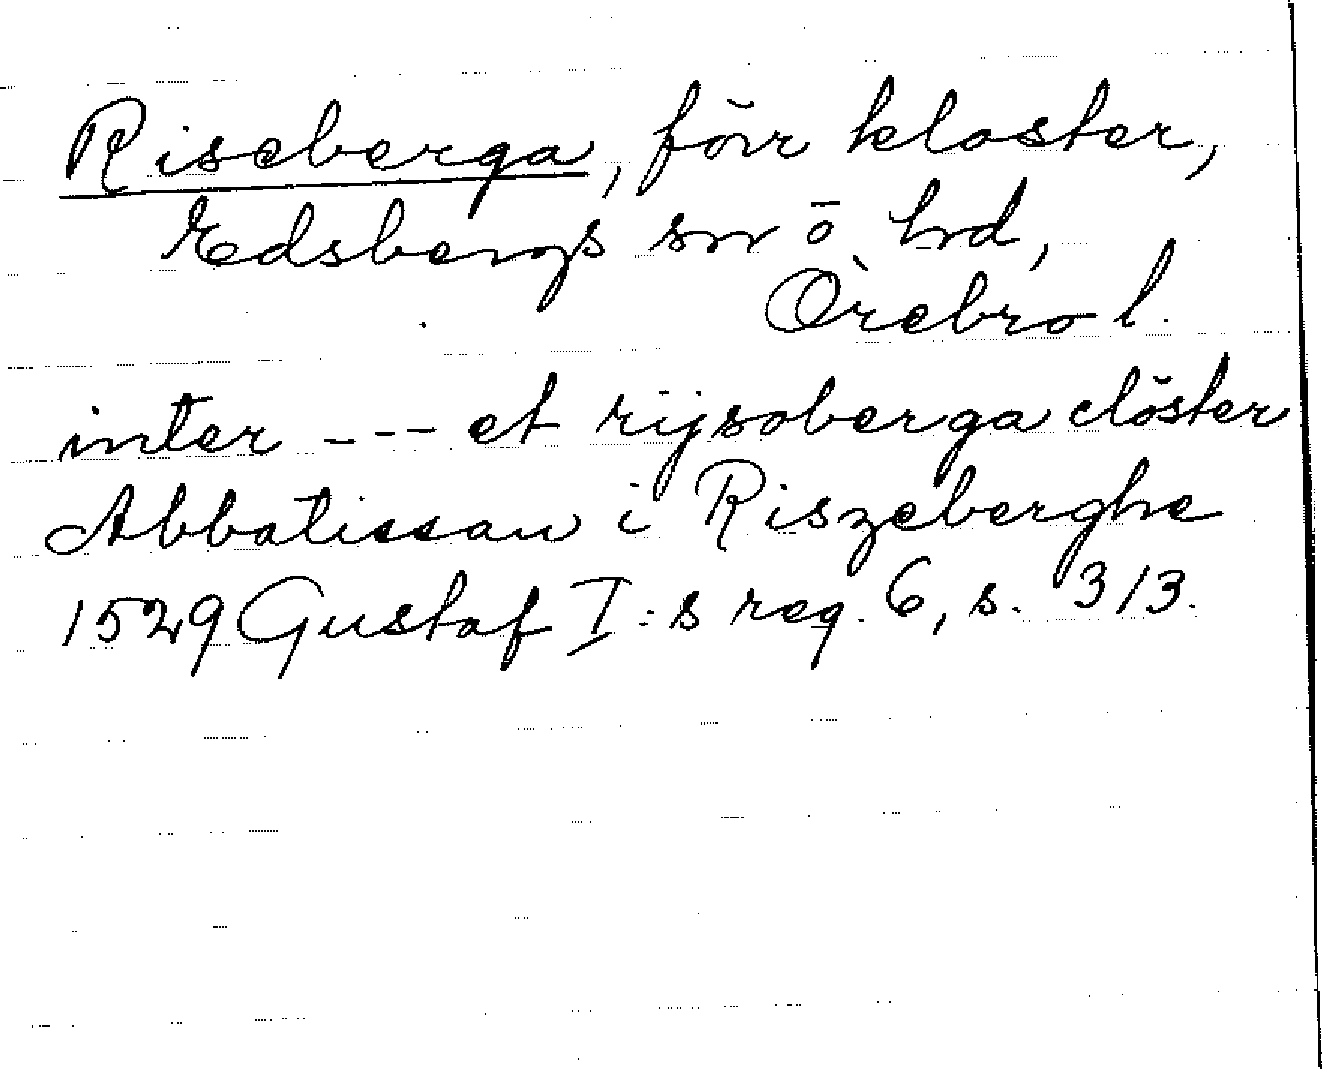 Riseberga, förr kloster,
Edsbergs sn ö hd,
Örebro l.
inter --- et rijsoberga clöster
Abbatissan i Riszeberghe
1529 Gustaf I:s reg. 6, s. 313.